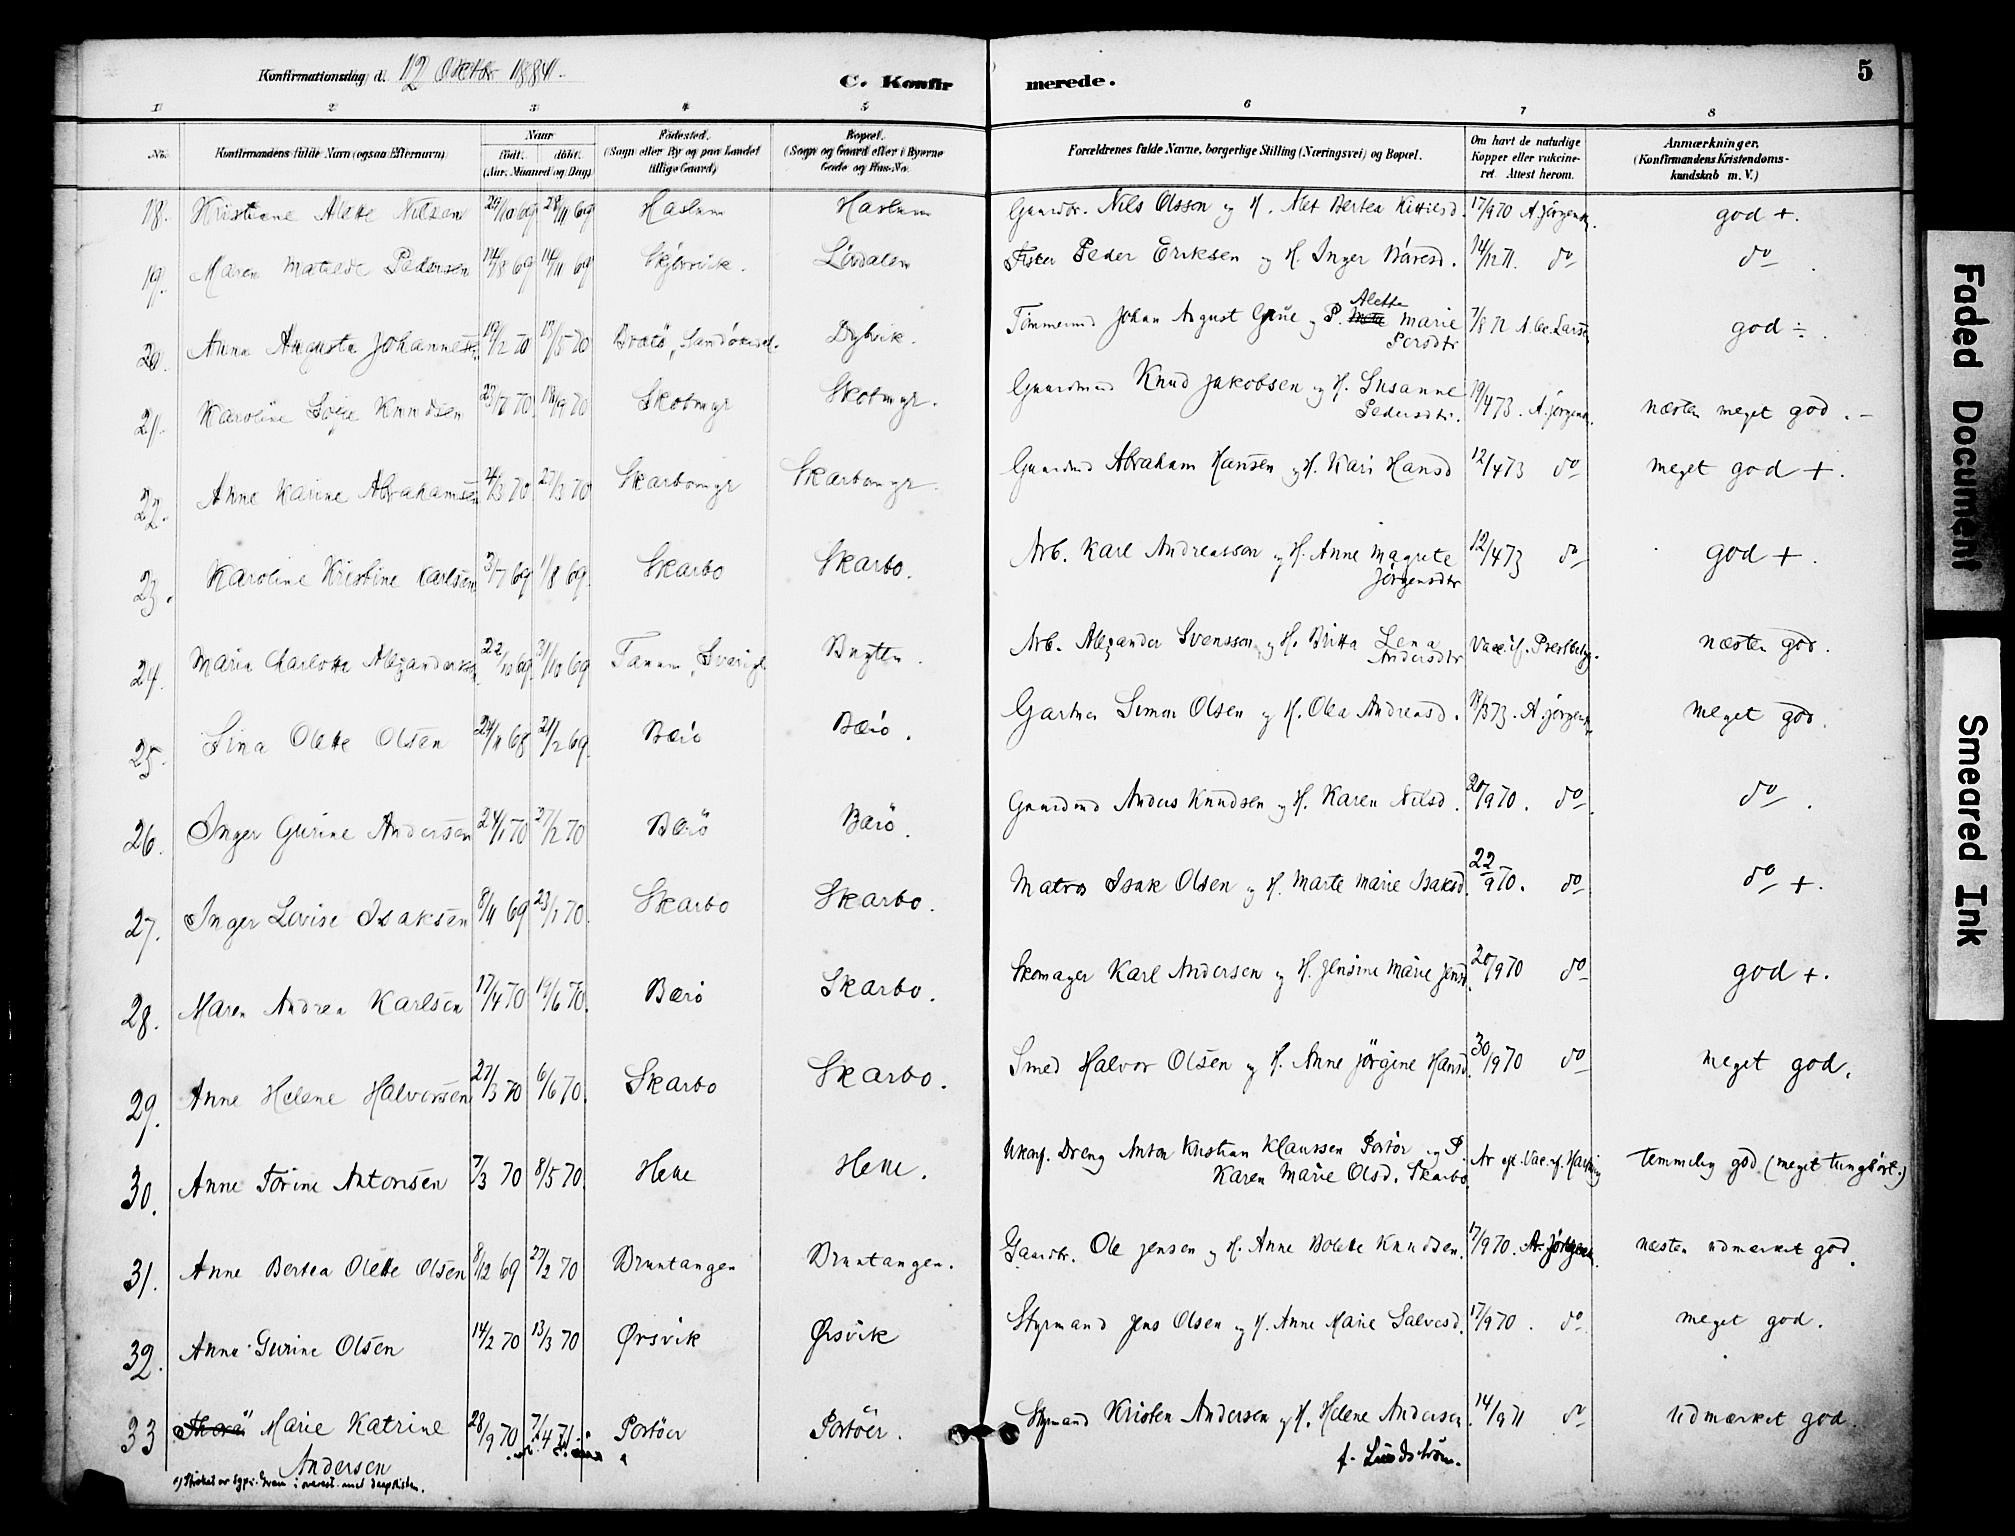 Konfirmationsdag d. 12 Oktbr 1884.
C. Konfirmerede.
5
1 2 3 4 5 6 7 8
No.
Konfirmandens fulde Navn (ogsaa Efternavn)
Naar
født. døbt.
(Aar, Maaned og Dag)
Fødested.
(Sogn eller By og paa Landet
tillige Gaard)
Bopæl.
(Sogn og Gaard eller i Byerne
Gade og Hus-No.
Forældrenes fulde Navne, borgerlige Stilling (Næringsvei) og Bopæl.
Om havt de naturlige
Kopper eller vakcine-
ret. Attest herom.
Anmærkninger.
(Konfirmandens Kristendoms-
kundskab m. V.)
18. Kristiane Alette Nilsen 29/10 69 28/11 69 Haslum Haslum Gaardbr. Nils Olsson og H. Alet Bertea Kittilsd. 17/9 70 A. Jørgensen. god +.
19. Maren Matilde Pedersen 14/8 69 14/11 69 Skjørvik. Lövdalen Fisker Peder Eriksen og H. Inger Baresd. 14/12 71. do do.
20. Anna Augusta Johannesen 19/2 70 15/5 70 Bratö, Sandökedal. Dybvik. Tömmermd Johan August Grue og P. Alette Marie
Persdtr 7/8 71 A. Larsen god ÷.
21. Karoline Sofie Knudsen 23/7 70. 18/9 70 Skotmyr Skotmyr. Gaardmd Knud Jakobsen og H. Susanne
Pedersdtr. 19/4 73. A. Jørgensen. næsten meget god. -
22. Anne Karine Abrahamsen 4/3 70 27/3 70 Skarbomyr Skarbomyr. Gaardmd Abraham Hansen og H. Kari Hansd 12/4 73 do meget god +.
23. Karoline Kristine Karlsen 3/7 69 1/8 69. Skarbo Skarbo. Arb. Karl Andreasson og H. Anne Magrete
Jørgensdtr 12/4 73 do god +.
24. Maria Charlotta Alexandersen. 22/10 69. 31/10 69 Tanum, Sverige Bugten. Arb. Alexander Svensson og H. Britta Lena
Andersdtr Vacc. if. Prestbetyg. næsten god.
25. Sina Olette Olsen 24/11 68 21/2 69. Bærö Bærö. Gartner Simon Olsen og H. Olea Andreasd. 18/3 73. A. Jørgensen. meget god.
26. Inger Gurine Andersen 24/1 70 27/2 70 Bærö Bærö. Gaardmd Anders Knudsen og H. Karen Nilsd. 20/9 70. do. do.
27. Inger Lovise Isaksen 8/11 69 23/1 70. Skarbo Skarbo. Matros Isak Olsen og H. Marte Marie Isaksd. 22/9 70. do do +.
28. Maren Andrea Karlsen 17/4 70 19/6 70. Bærö Skarbo. Skomager Karl Andersen og H. Jensine Marie Jensd. 20/9 70 do god +.
29. Anne Helene Halvorsen 27/3 70 6/6 70. Skarbo Skarbo. Smed Halvor Olsen og H. Anne Jörgine Hansd. 30/9 70 do meget god.
30. Anne Torine Antonsen 7/3 70 8/5 70. Helle Helle. Ukonf. Dreng Anton Kristian Klaussen Portör og P.
Karen Marie Olsd. Skarbo. temmelig god (meget tunghört.)
31. Anne Bertea Olette Olsen 8/12 69 27/2 70 Bruntangen Bruntangen. Gaardbr. Ole Jensen og H. Anne Bolette Knudsen. 17/9 70. A. Jørgensen. næsten udmærket god.
32. Anna Gurine Olsen 14/2 70 13/3 70 Ørsvik Ørsvik Styrmand Jens Olsen og H. Anne Marie Salvesd. 17/9 70. do meget god.
33 Thora Marie Katrine
Andersen 28/9 70 7/4 71 Portöer Portöer. Styrmand Kristen Andersen og H. Helene Andersen
f. Lindström. 14/9 71 do Udmærket god.
Faded Document
Smeared Ink